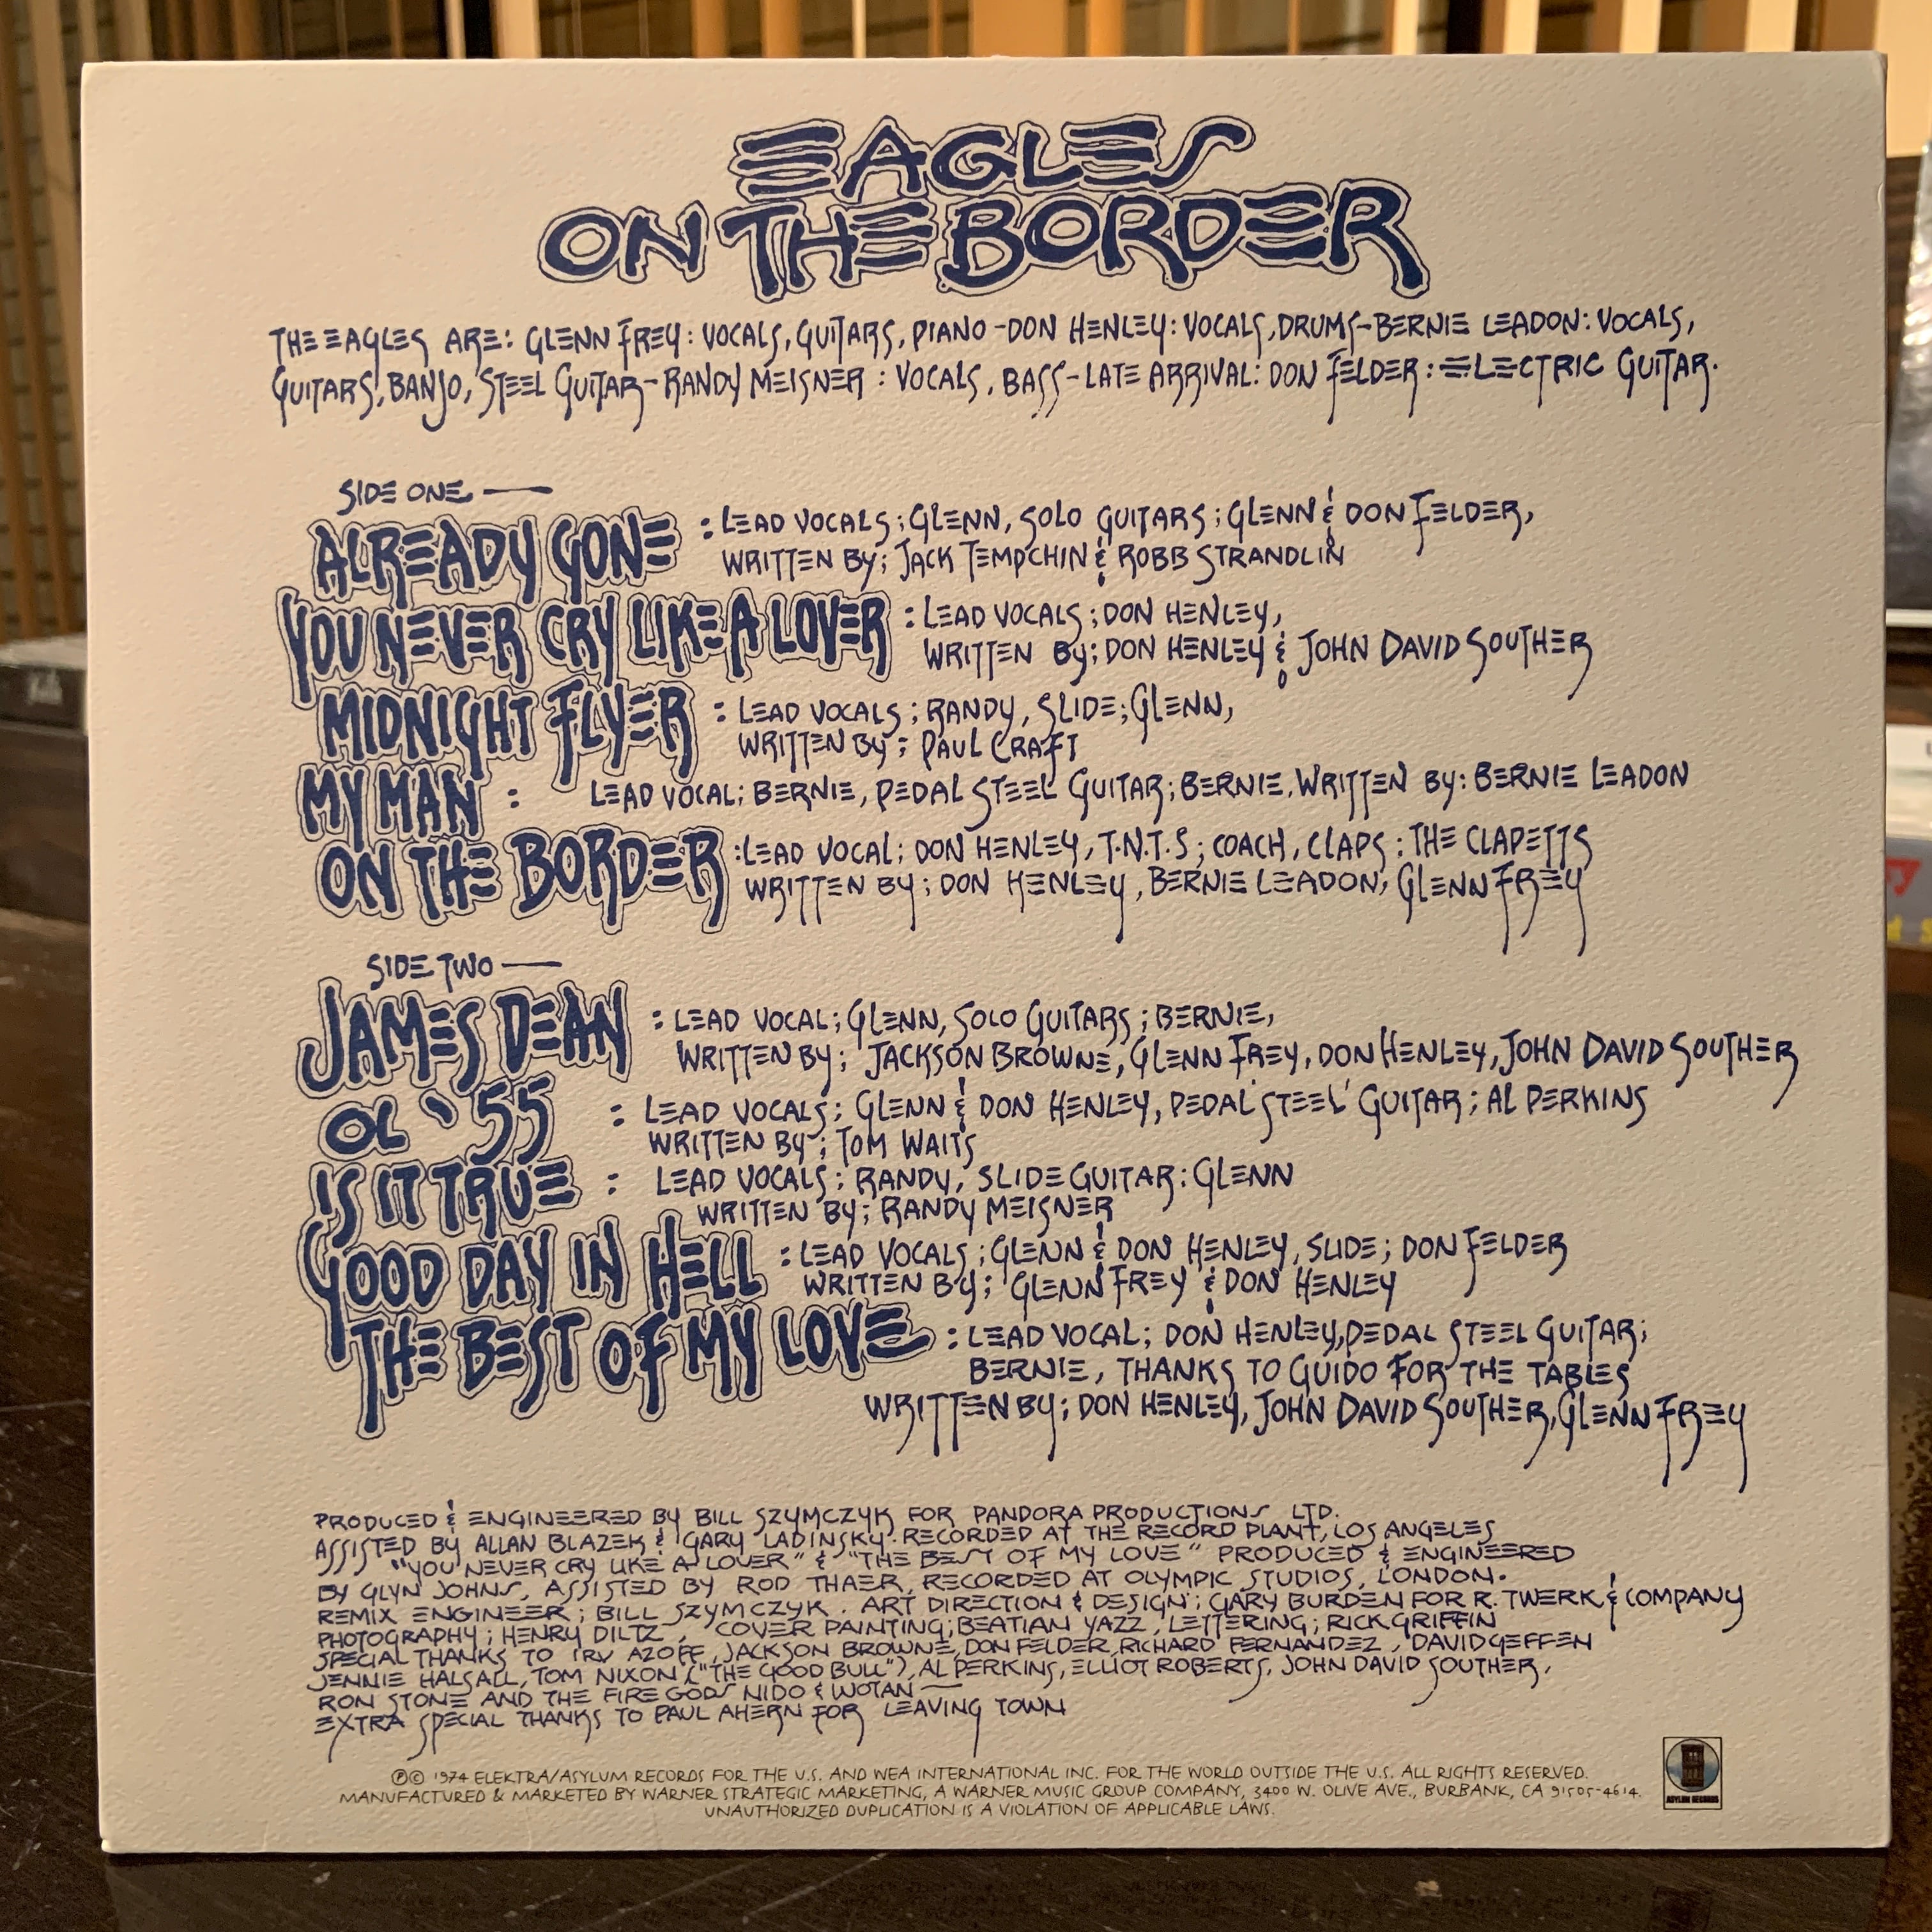 EAGLES
ON THE BORDER
THE EAGLES ARE: GLENN FREY: VOCALS, GUITARS, PIANO - DON HENLEY: VOCALS, DRUMS - BERNIE LEADON: VOCALS,
GUITARS, BANJO, STEEL GUITAR - RANDY MEISNER: VOCALS, BASS - LATE ARRIVAL: DON FELDER: ELECTRIC GUITAR.
SIDE ONE —
ALREADY GONE : LEAD VOCALS; GLENN, SOLO GUITARS; GLENN & DON FELDER,
WRITTEN BY; JACK TEMPCHIN & ROBB STRANDLIN
YOU NEVER CRY LIKE A LOVER : LEAD VOCALS; DON HENLEY,
WRITTEN BY; DON HENLEY & JOHN DAVID SOUTHER
MIDNIGHT FLYER : LEAD VOCALS; RANDY, SLIDE; GLENN,
WRITTEN BY; PAUL CRAFT
MY MAN : LEAD VOCAL; BERNIE, PEDAL STEEL GUITAR; BERNIE, WRITTEN BY: BERNIE LEADON
ON THE BORDER : LEAD VOCAL; DON HENLEY, T.N.T.S; COACH, CLAPS; THE CLAPETTS
WRITTEN BY; DON HENLEY, BERNIE LEADON, GLENN FREY
SIDE TWO —
JAMES DEAN : LEAD VOCAL; GLENN, SOLO GUITARS; BERNIE,
WRITTEN BY; JACKSON BROWNE, GLENN FREY, DON HENLEY, JOHN DAVID SOUTHER
OL '55 : LEAD VOCALS; GLENN & DON HENLEY, PEDAL STEEL GUITAR; AL PERKINS
WRITTEN BY; TOM WAITS
IS IT TRUE : LEAD VOCALS; RANDY, SLIDE GUITAR: GLENN
WRITTEN BY; RANDY MEISNER
GOOD DAY IN HELL : LEAD VOCALS; GLENN & DON HENLEY, SLIDE; DON FELDER
WRITTEN BY; GLENN FREY & DON HENLEY
THE BEST OF MY LOVE : LEAD VOCAL; DON HENLEY, PEDAL STEEL GUITAR;
BERNIE, THANKS TO GUIDO FOR THE TABLES
WRITTEN BY; DON HENLEY, JOHN DAVID SOUTHER, GLENN FREY
PRODUCED & ENGINEERED BY BILL SZYMCZYK FOR PANDORA PRODUCTIONS LTD.
ASSISTED BY ALLAN BLAZEK & GARY LADINSKY. RECORDED AT THE RECORD PLANT, LOS ANGELES
"YOU NEVER CRY LIKE A LOVER" & "THE BEST OF MY LOVE" PRODUCED & ENGINEERED
BY GLYN JOHNS, ASSISTED BY ROD THAER, RECORDED AT OLYMPIC STUDIOS, LONDON.
REMIX ENGINEER; BILL SZYMCZYK. ART DIRECTION & DESIGN; GARY BURDEN FOR R. TWERK & COMPANY
PHOTOGRAPHY; HENRY DILTZ, COVER PAINTING; BEATIAN YAZZ, LETTERING; RICK GRIFFIN
SPECIAL THANKS TO IRV AZOFF, JACKSON BROWNE, DON FELDER, RICHARD FERNANDEZ, DAVID GEFFEN
JENNIE HALSALL, TOM NIXON ("THE GOOD BULL"), AL PERKINS, ELLIOT ROBERTS, JOHN DAVID SOUTHER,
RON STONE AND THE FIRE GODS NIDO & WOTAN —
EXTRA SPECIAL THANKS TO PAUL AHERN FOR LEAVING TOWN
℗© 1974 ELEKTRA/ASYLUM RECORDS FOR THE U.S. AND WEA INTERNATIONAL INC. FOR THE WORLD OUTSIDE THE U.S. ALL RIGHTS RESERVED.
MANUFACTURED & MARKETED BY WARNER STRATEGIC MARKETING, A WARNER MUSIC GROUP COMPANY, 3400 W. OLIVE AVE., BURBANK, CA 91505-4614.
UNAUTHORIZED DUPLICATION IS A VIOLATION OF APPLICABLE LAWS.
ASYLUM RECORDS